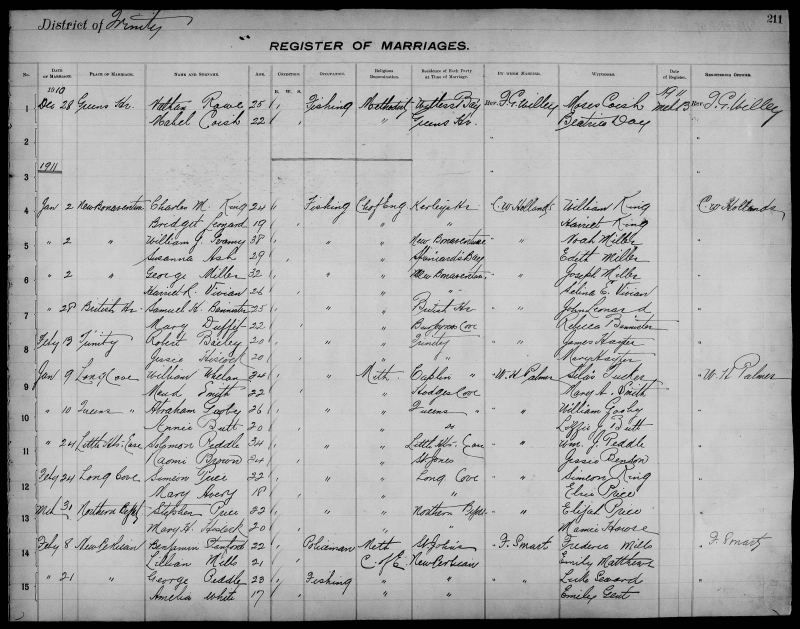 District of Trinity 211
REGISTER OF MARRIAGES.
No. DATE OF MARRIAGE. PLACE OF MARRIAGE. NAME AND SURNAME. AGE. CONDITION. OCCUPATION. Religious Denomination. Residence of Each Party at Time of Marriage. BY WHOM MARRIED. WITNESSES. Date of Register. REGISTERING OFFICER.
B. W. S.
1910 1911
1 Dec 28 Greens Hr. Nathan Rowe 25 Fishing Methodist Bay Rev. T. G. Willey Moses Coish Mch 13 Rev T. G. Willey
Mabel Coish 22 " Greens Hr. Beatrice Day
2
1911
3
4 Jan 2 New Bonaventure Charles M King 24 Fishing Ch of Eng Kerleys Hr C W Hollands William King C. W Hollands
Bridget Leonard 19 " " Harriet King
5 " 2 " William J. 38 " New Bonaventure " " Noah Miller "
Susanna Ash 29 " Spaniards Bay Edith Miller
6 " 2 " George Miller 32 " New Bonaventure " " Joseph Miller "
Harriet R. Vivian 26 " " Selina E. Vivian
7 " 28 British Hr Samuel H. Bannister 25 " " British Hr " " John Leonard "
Mary Duffet 22 " Cove Rebecca Bannister
8 Feby 13 Trinity Robert Bailey 20 " Trinity James Harper "
Jessie Hiscock 20 " " Mary Harper
9 Jan 9 Long Cove William Whelan 24 " Meth. Caplin " W. H Palmer Silas Tucker " W. H Palmer
Maud Smith 22 " Hodges Cove Mary A. Smith
10 " 10 Queens " Abraham 26 " " Queens " " William "
Annie Butt 20 " " Butt
11 " 24 Little Hr. Ease Solomon Peddle 24 " " Little Hr. " " Wm. J. Peddle "
Naomi Brown 24 " St Jones Jessie Benson
12 Feby 24 Long Cove Simeon Price 22 " " Long Cove " " Simeon King "
Mary Avery 18 " " Elsie Price
13 Mch 31 Northern Stephen Price 22 " " Northern " " Elijah Price "
Mary H. 20 " " Mamie House
14 Feby 8 New Perlican Benjamin 22 Policeman Meth St John's F. Smart Frederic Mills F. Smart
Lillian Mills 21 C. of E. New Perlican Emily Matthews
15 " 21 " George Peddle 23 Fishing " " " " Luke Seward "
Amelia White 17 " " Emily Gent